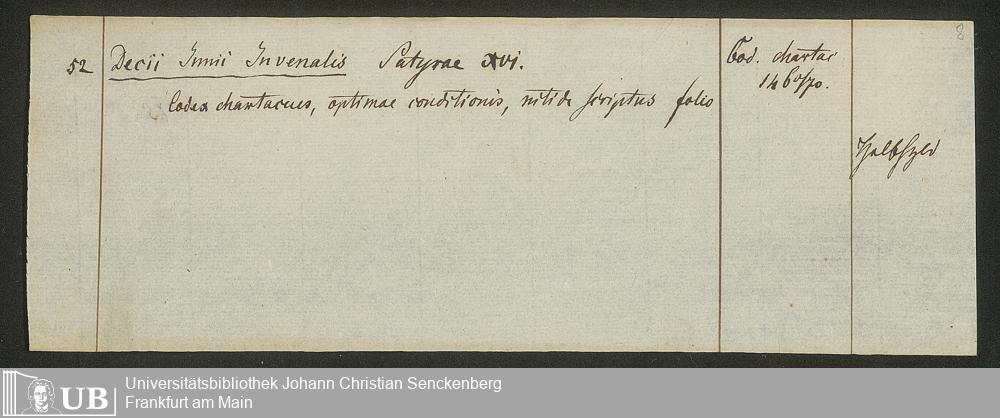 8
52 Decii Junii Juvenalis Satyrae xvi. Cod. chartac
1460/70.
Codex chartaceus, optimae conditionis, nitide scriptus folio
UB Universitätsbibliothek Johann Christian Senckenberg
Frankfurt am Main